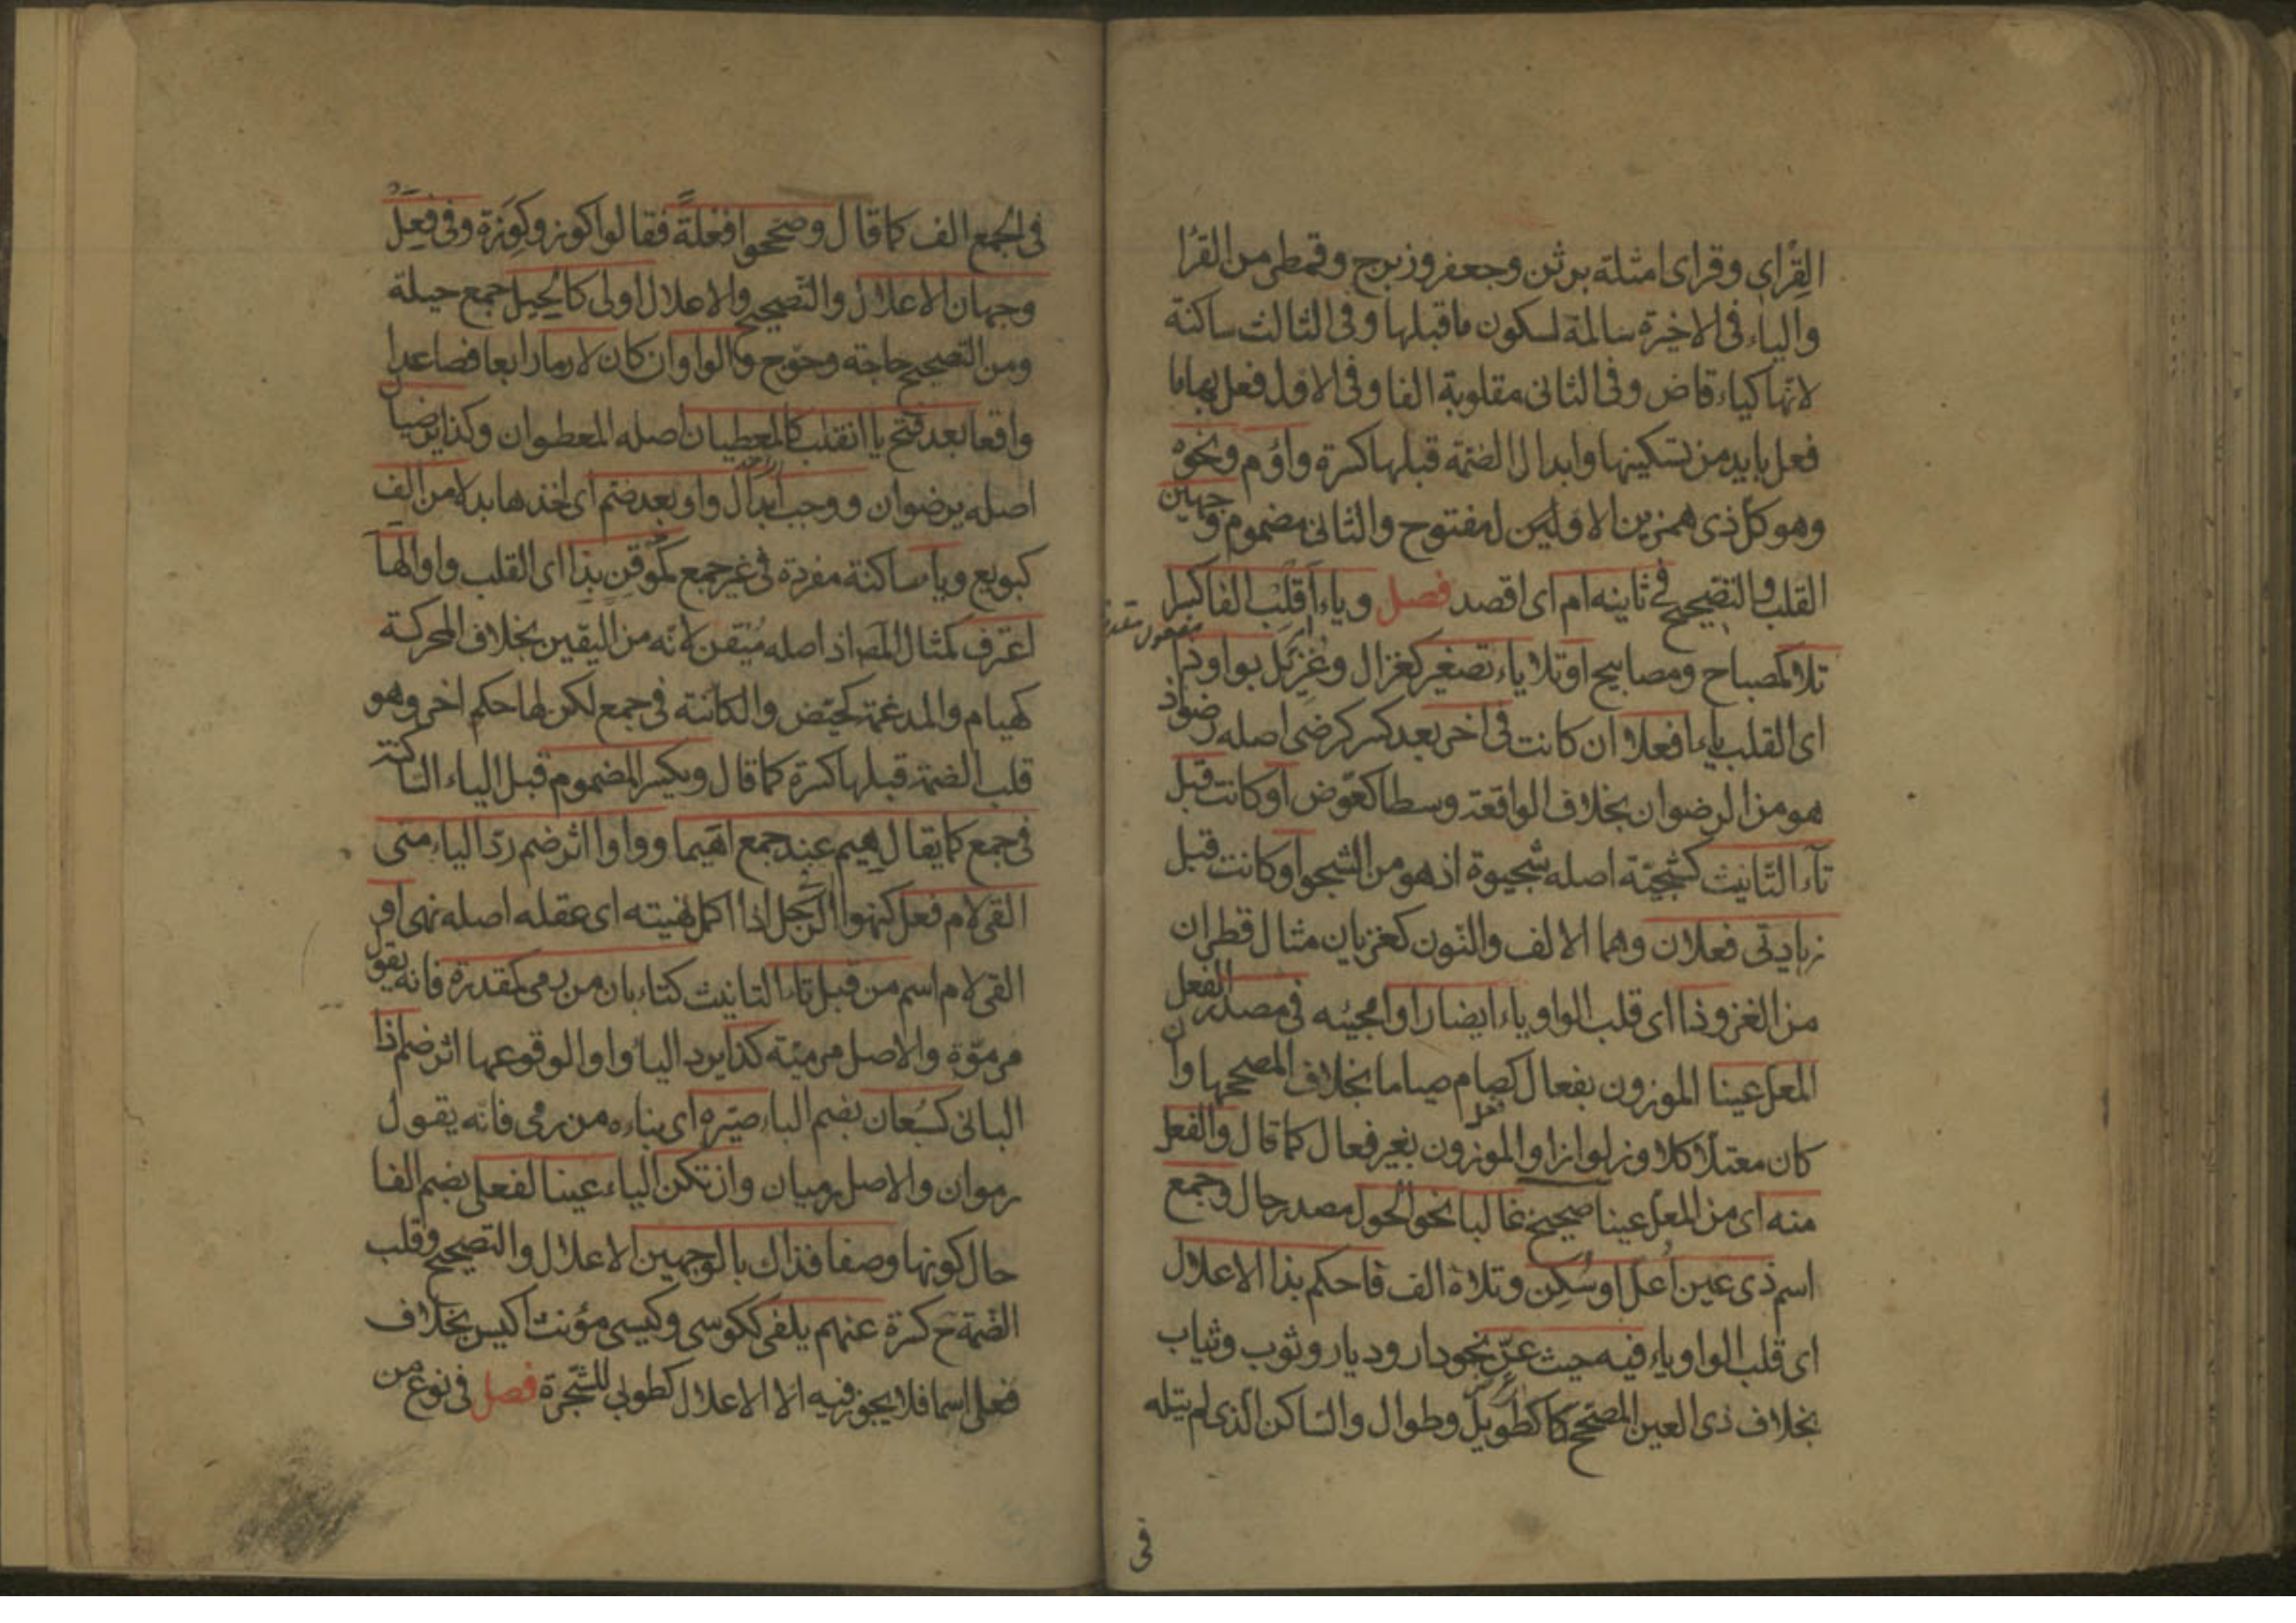 القرأي وقرأى امثلة برثن وجعفر وزبرج وقمطر من القرا
والياء فى الاخيرة سالمة لسكون ماقبلها وفى الثالث ساكنة
لانها كياء قاض وفى الثانى مقلوبة الفا وفى الاول فعل بها ما
فعل بايد من تسكينها وابدال الضمة قبلها كسرة وأؤم ونحوه
وهو كل ذى همزتين الاولين لمفتوح والثانى مضموم وجهين
القلب والتصحيح فى ثانيه ام اى اقصد فصل وياء اقلب الفا كسرا
تلا كمصباح ومصابيح او تلا ياء تصغير كغزال وغزيل بواو ذا
اى القلب ياء افعلا ان كانت فى اخر بعد كسر كرضى اصله رضو اذ
هو من الرضوان بخلاف الواقعة وسطا كعوض او كانت قبل
تاء التانيث كشجية اصله شجيوة اذ هو من الشجو او كانت قبل
زيادتى فعلان وهما الالف والنون كغزيان مثال قطران
من الغزو وذا اى قلب الواو ياء ايضا راوا مجيئه فى مصدر الفعل
المعل عينا الموزون بفعال كصام صياما بخلاف المصححها وان
كان معتلا كلاوذ لواذا والموزون بغير فعال كما قال والفعل
منه اى من المعل عينا صحيح غالبا نحو الحول مصدر حال وجمع
اسم ذى عين اعل او سكن وتلاه الف فاحكم بذا الاعلال
اى قلب الواو ياء فيه حيث عن نحو دار وديار وثوب وثياب
بخلاف ذى العين المصحح كطويل وطوال والساكن الذى لم يتله
فى
فى الجمع الف كما قال وصححوا افعلة فقالوا كوز وكوزة وفى فعل
وجهان الاعلال والتصحيح والاعلال اولى كالحيل جمع حيلة
ومن التصحيح حاجة وحوج والواو ان كان لاما رابعا فصاعدا
واقعا بعد فتح يا انقلب كالمعطيان اصله المعطوان وكذا يرضيان
اصله يرضوان ووجب ابدال واو بعد ضم اى اخذها بدلا من الف
كبويع وياء ساكنة مفردة فى غير جمع كموقن بذا اى القلب واوا لها
اعترف كمثال المص اذ اصله ميقن لانه من اليقين بخلاف المحركة
كهيام والمدغمة كحيض والكائنة فى جمع لكن لها حكم اخر وهو
قلب الضمة قبلها كسرة كما قال ويكسر المضموم قبل الياء الساكنة
فى جمع كما يقال هيم عند جمع اهيما وواوا اثر ضم رد الياء متى
الفى لام فعل كنهو الرجل اذا اكمل نهيته اى عقله اصله نهى او
الفى لام اسم من قبل تاء التانيث كتاء بان من رمى كمقدرة فانه يقول
مرموة والاصل مرمية كذا يرد الياء واوا لوقوعها اثر ضم اذا
البانى كسبعان بضم الباء صيره اى بناءه من رمى فانه يقول
رموان والاصل رميان وان تكن الياء عينا لفعلى بضم الفا
حال كونها وصفا فذاك بالوجهين الاعلال والتصحيح وقلب
الضمة ح كسرة عنهم يلفى ككوسى وكيسى مؤنث اكيس بخلاف
فعلى اسما فلا يجوز فيه الا الاعلال كطوبى للشجرة فصل فى نوع من